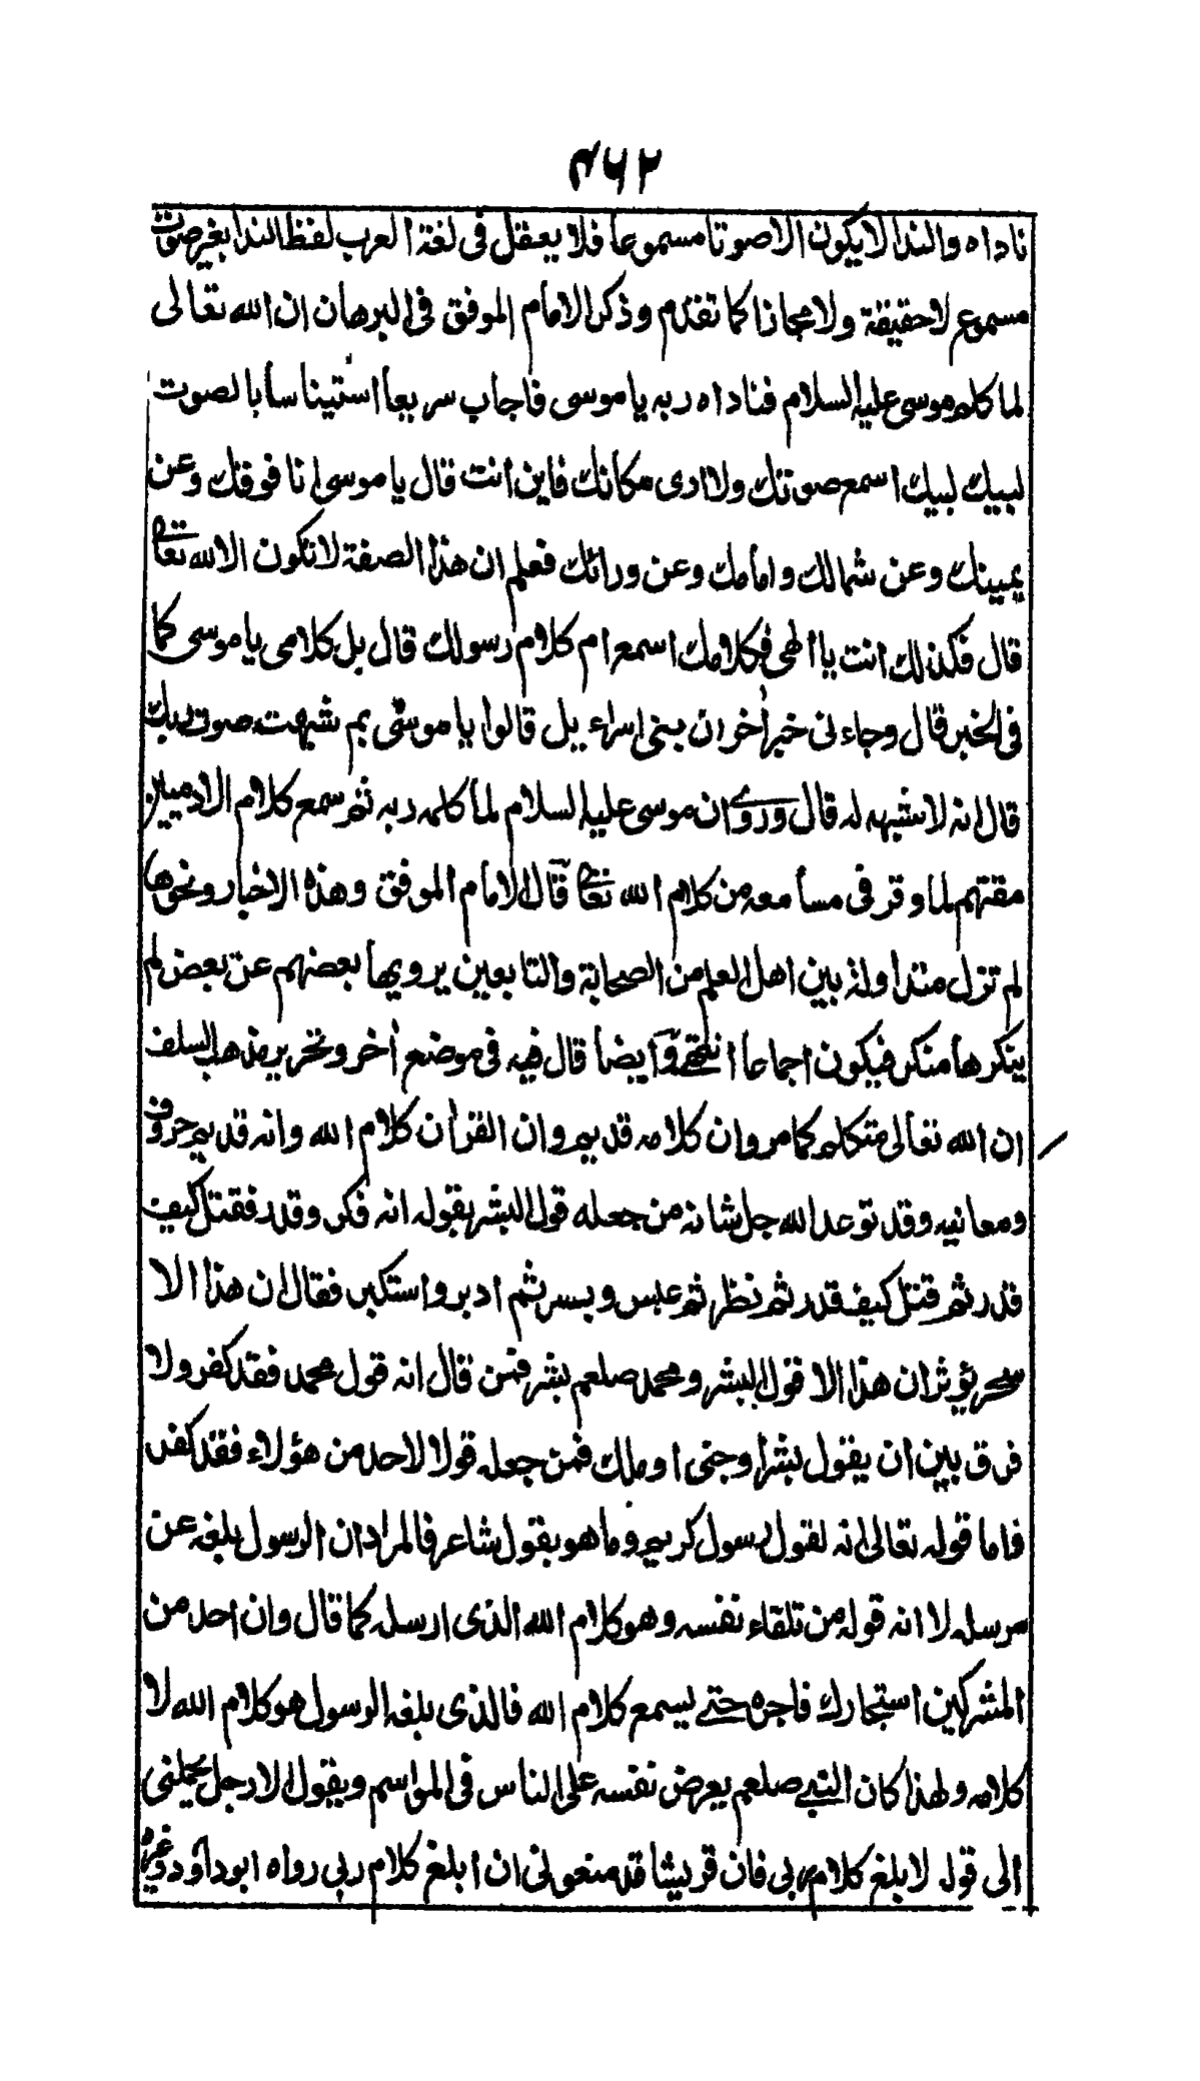 ٤٦٢
ناداه والندا لا يكون الا صوتا مسموعا فلا يعقل فى لغة العرب لفظ الندا بغير صوت
مسموع لا حقيقة ولا مجازا كما تقدم وذكر الامام الموفق فى البرهان ان الله تعالى
لما كلم موسى عليه السلام فناداه ربه يا موسى فاجاب سريعا استيناسا بالصوت
لبيك لبيك اسمع صوتك ولا ارى مكانك فاين انت قال يا موسى انا فوقك وعن
يمينك وعن شمالك وامامك وعن ورائك فعلم ان هذا الصفة لا تكون الا لله تعالى
قال فكذلك انت يا الهى فكلامك اسمع ام كلام رسولك قال بل كلامى يا موسى كما
فى الخبر قال وجاء فى خبر أخر ان بنى اسراءيل قالوا يا موسى بم شبهت صوت ربك
قال انه لا شبيه له قال وروى ان موسى عليه السلام لما كلمه ربه ثم سمع كلام الادميين
مقتهم لما وقر فى مسامعه من كلام الله تعالى قال الامام الموفق وهذه الاخبار ونحوها
لم تزل متداولة بين اهل العلم من الصحابة والتابعين يرويها بعضهم عن بعض لم
ينكرها منكر فيكون اجماعا انتهى وايضا قال فيه فى موضع أخر وتحرير مذهب السلف
ان الله تعالى متكلم كما مر وان كلامه قديم وان القرأن كلام الله وانه قديم حروفه
ومعانيه وقد توعد الله جل شانه من جعله قول البشر بقوله انه فكر وقدر فقتل كيف
قدر ثم قتل كيف قدر ثم نظر ثم عبس وبسر ثم ادبر واستكبر فقال ان هذا الا
سحر يؤثر ان هذا الا قول البشر ومحمد صلعم بشر فمن قال انه قول محمد فقد كفر ولا
فرق بين ان يقول بشر او جنى او ملك فمن جعله قولا لاحد من هؤلاء فقد كفر
فاما قوله تعالى انه لقول رسول كريم وما هو بقول شاعر فالمراد ان الرسول بلغه عن
مرسله لا انه قوله من تلقاء نفسه وهو كلام الله الذى ارسله كما قال وان احد من
المشركين استجارك فاجره حتى يسمع كلام الله فالذى بلغه الرسول هو كلام الله لا
كلامه ولهذا كان النبى صلعم يعرض نفسه على الناس فى المواسم ويقول الا رجل يحملنى
الى قوله لا بلغ كلام ربى فان قريشا قد منعونى ان ابلغ كلام ربى رواه ابو داؤد وغيره